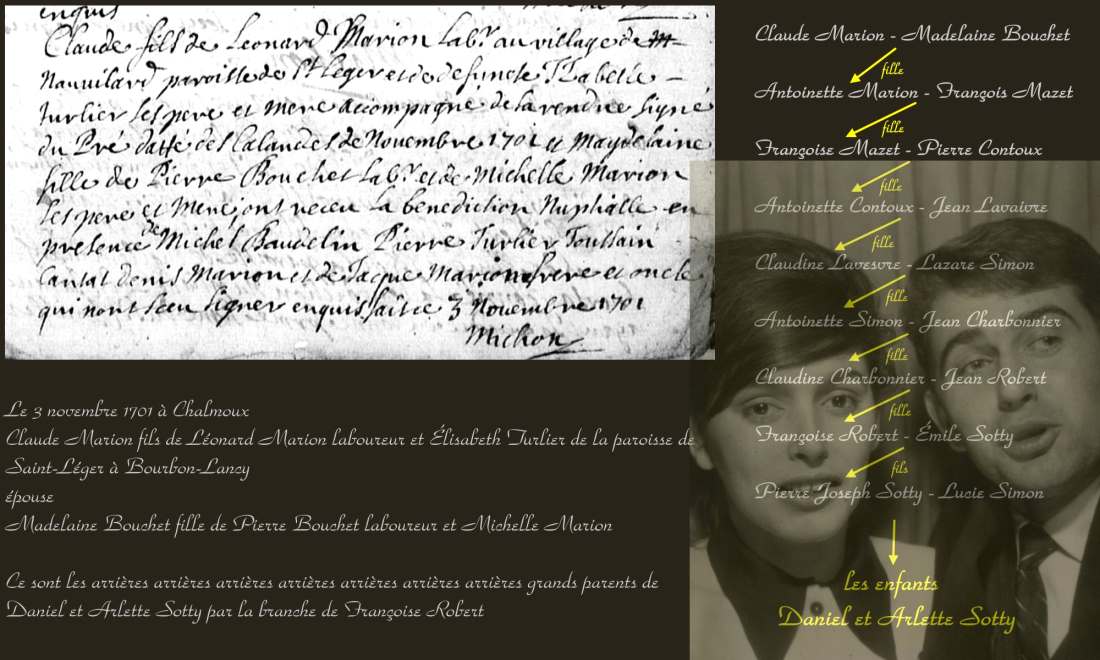 enquis
Claude fils de Leonard Marion Lab.r au village de
Nauvilard paroisse de St Leger et de defuncte
turlier ses pere et mere accompagné de la rendue signé
du Pré datté des Calandes de Novembre 1701 et Maydelaine
fille de Pierre Bouchet Lab.r et de Michelle Marion
ses pere et mere, ont receu la benediction Nuptialle en
presence de Michel Baudelin Pierre Turlier Toussain
Cantat Denis Marion et de Jacque Marion frere et oncle
qui n'ont sceu signer enquis, fait ce 3 Novembre 1701
Michon
Le 3 novembre 1701 à Chalmoux
Claude Marion fils de Léonard Marion laboureur et Élisabeth Turlier de la paroisse de
Saint-Léger à Bourbon-Lancy
épouse
Madelaine Bouchet fille de Pierre Bouchet laboureur et Michelle Marion
Ce sont les arrières arrières arrières arrières arrières arrières arrières grands parents de
Daniel et Arlette Sotty par la branche de Françoise Robert
Claude Marion - Madelaine Bouchet
fille
Antoinette Marion - François Mazet
fille
Françoise Mazet - Pierre Contoux
fille
Antoinette Contoux - Jean Lavaivre
fille
Claudine Lavesvre - Lazare Simon
fille
Antoinette Simon - Jean Charbonnier
fille
Claudine Charbonnier - Jean Robert
fille
Françoise Robert - Émile Sotty
fils
Pierre Joseph Sotty - Lucie Simon
les enfants
Daniel et Arlette Sotty